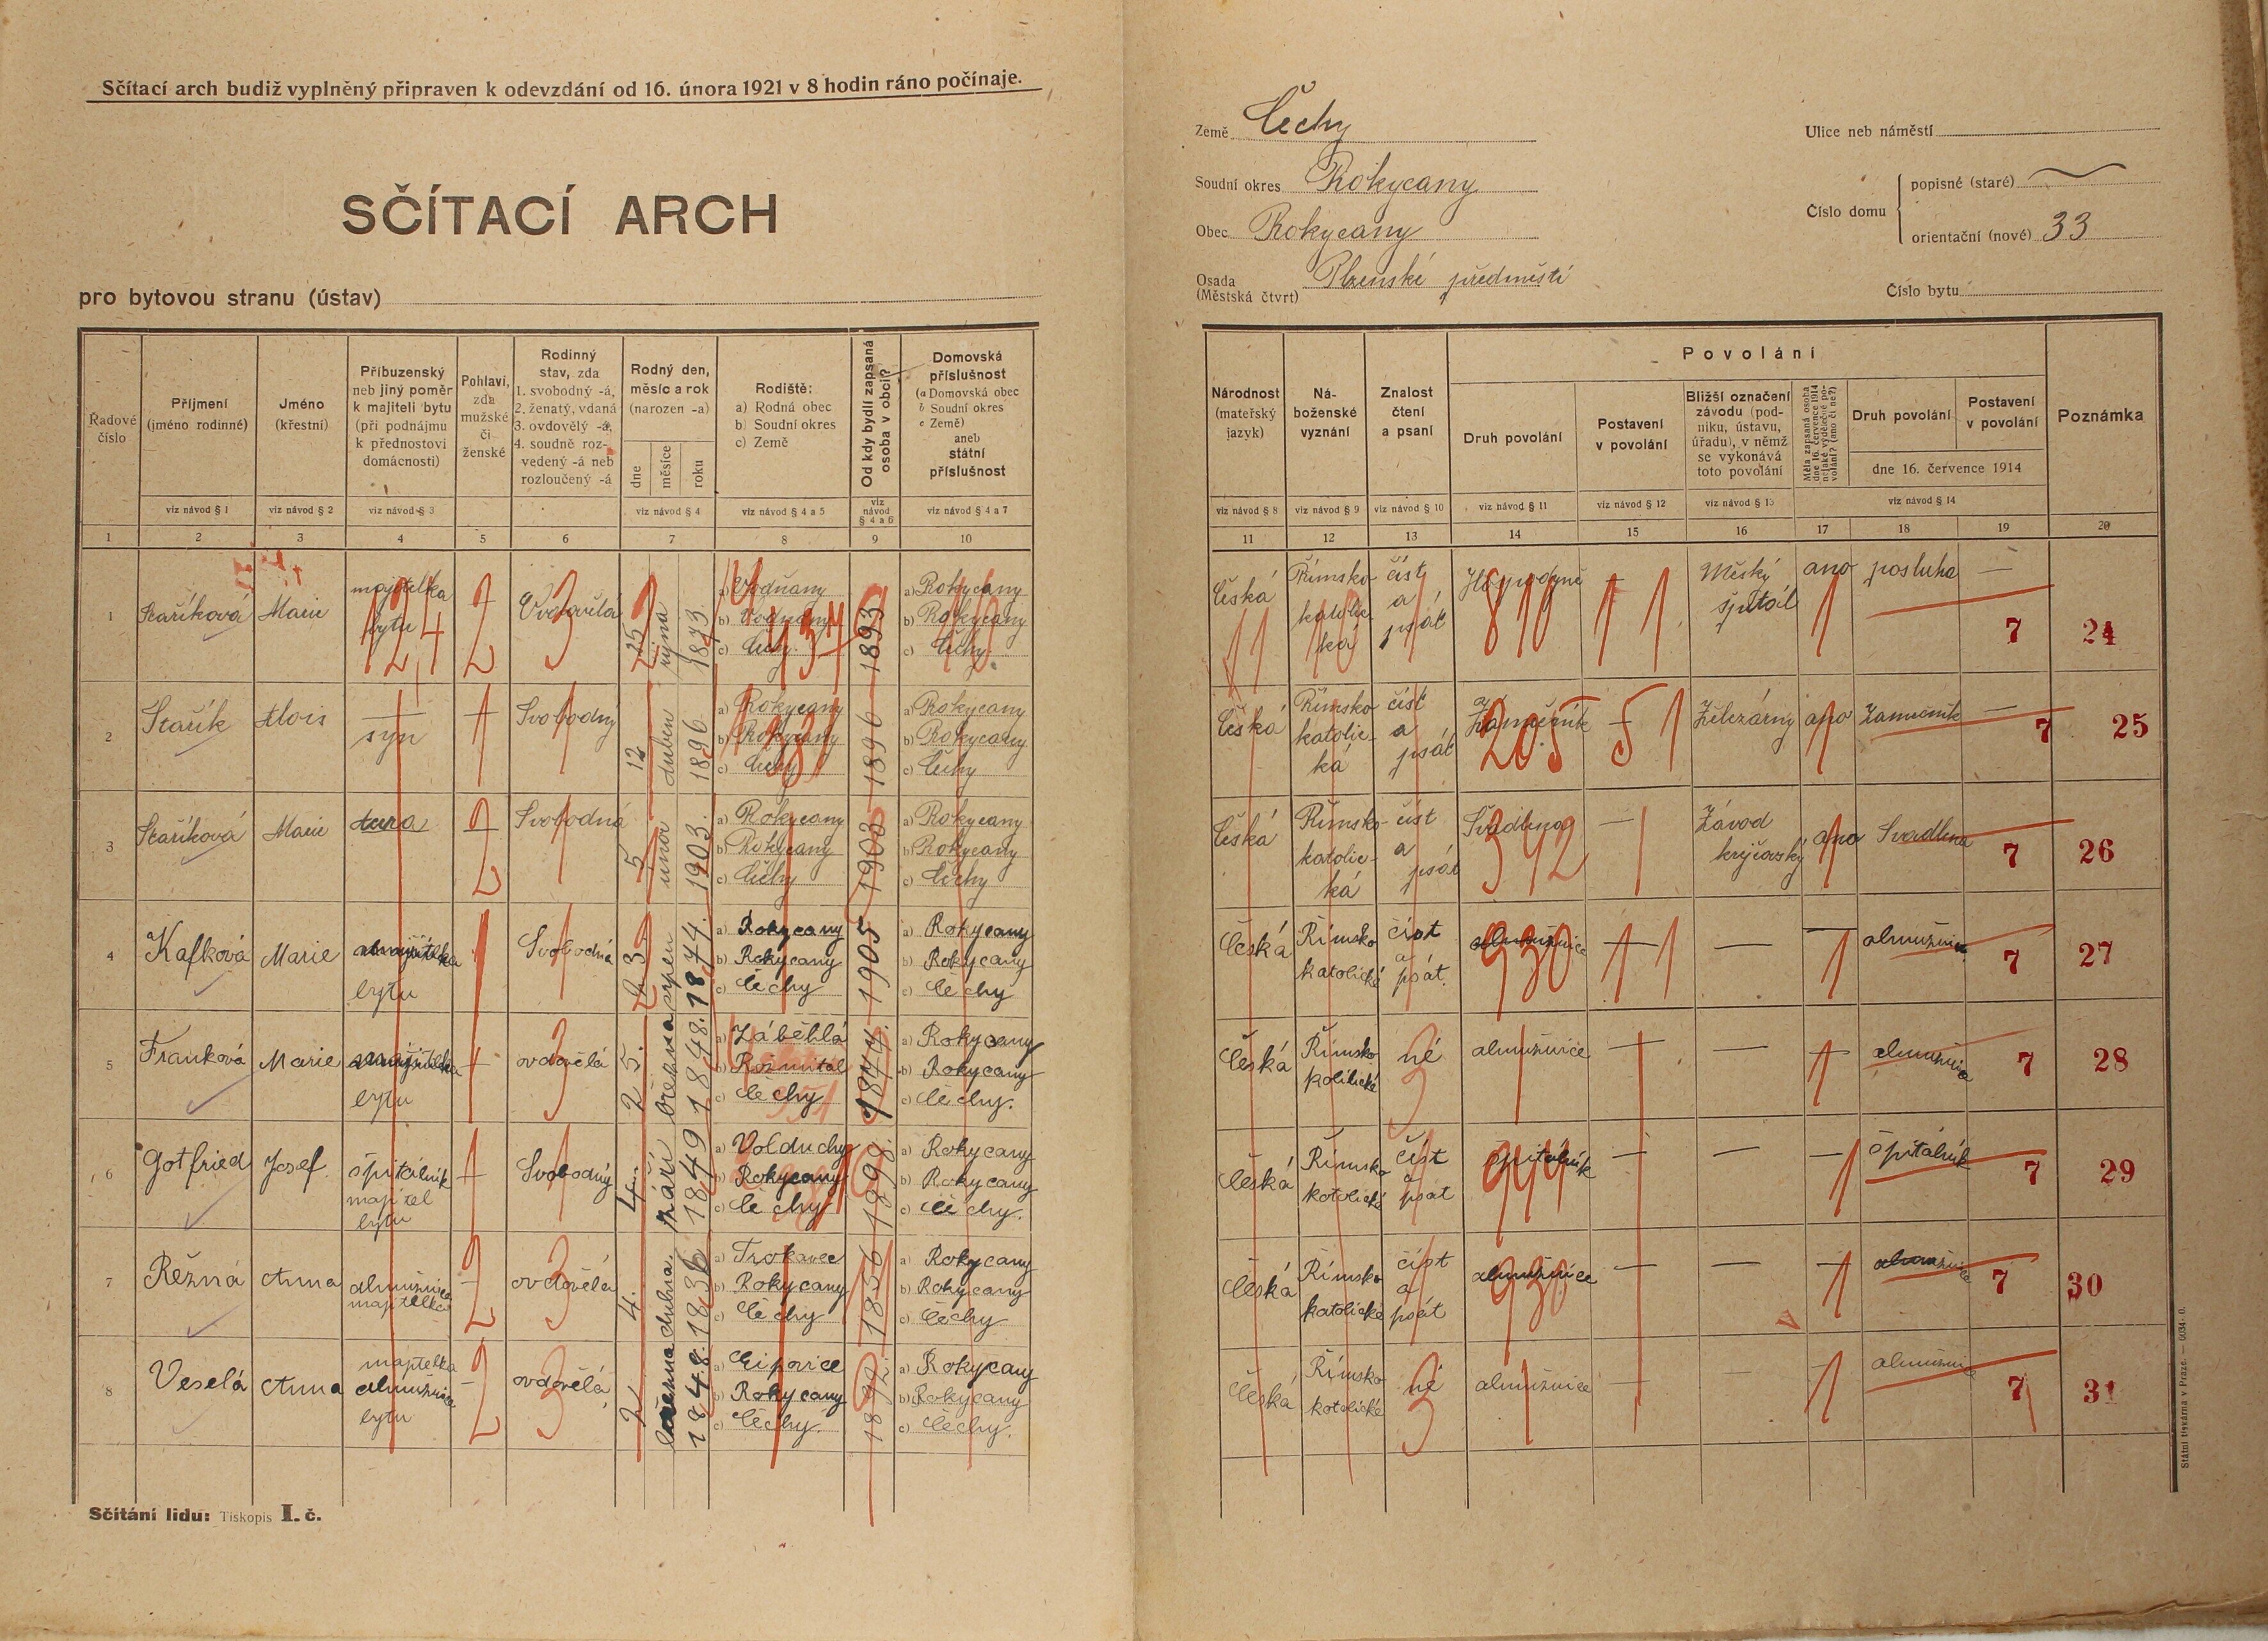 Sčítací arch budiž vyplněný připraven k odevzdání od 16. února 1921 v 8 hodin ráno počínaje.
SČÍTACÍ ARCH
pro bytovou stranu (ústav)
Země Čechy
Soudní okres Rokycany
Obec Rokycany
Osada (Městská čtvrt) Plzenské předměstí
Ulice neb náměstí
Číslo domu
popisné (staré)
orientační (nové) 33
Číslo bytu
Řadové číslo
Příjmení (jméno rodinné)
Jméno (křestní)
Příbuzenský neb jiný poměr k majiteli bytu (při podnájmu k přednostovi domácnosti)
Pohlaví, zda mužské či ženské
Rodinný stav, zda 1. svobodný -á, 2. ženatý, vdaná 3. ovdovělý -á, 4. soudně rozvedený -á neb rozloučený -á
Rodný den, měsíc a rok (narozen -a)
dne měsíce roku
Rodiště: a) Rodná obec b) Soudní okres c) Země
Od kdy bydlí zapsaná osoba v obci?
Domovská příslušnost (a Domovská obec b Soudní okres c Země) aneb státní příslušnost
viz návod § 1 viz návod § 2 viz návod § 3 viz návod § 4 viz návod § 4 a 5 viz návod § 4 a 6 viz návod § 4 a 7
1 2 3 4 5 6 7 8 9 10
Národnost (mateřský jazyk)
Náboženské vyznání
Znalost čtení a psaní
Povolání
Druh povolání
Postavení v povolání
Bližší označení závodu (podniku, ústavu, úřadu), v němž se vykonává toto povolání
Měla zapsaná osoba dne 16. července 1914 nějaké výdělečné povolání? (ano či ne?)
Druh povolání
Postavení v povolání
dne 16. července 1914
Poznámka
viz návod § 8 viz návod § 9 viz návod § 10 viz návod § 11 viz návod § 12 viz návod § 13 viz návod § 14
11 12 13 14 15 16 17 18 19 20
1 Staříková Marie majitelka bytu Ovdovělá 25 října 1873 a) Vodňany b) Vodňany c) Čechy 1893 a) Rokycany b) Rokycany c) Čechy
Česká Římsko katolická číst a psát Hospodyně 810 Městký špitál ano posluha — 7 24
2 Stařík Alois syn Svobodný 12 duben 1896 a) Rokycany b) Rokycany c) Čechy 1896 a) Rokycany b) Rokycany c) Čechy
Česká Římsko katolická číst a psát Zámečník 205 51 Železárny ano Zámečník — 7 25
3 Staříková Marie dcera Svobodná 5 únor 1903 a) Rokycany b) Rokycany c) Čechy 1903 a) Rokycany b) Rokycany c) Čechy
Česká Římsko katolická číst a psát Švadlena 392 — Závod krejčovský ano Svadlena 7 26
4 Kafková Marie bytu Svobodná srpen 1874. a) Rokycany b) Rokycany c) Čechy 1905 a) Rokycany b) Rokycany c) Čechy
Česká Římsko katolické číst a psát. almužnice 930 — — almužnice 7 27
5 Franková Marie bytu ovdovělá 25. března 1848. a) Záběhlá b) Rožmitál c) Čechy 1874 a) Rokycany b) Rokycany c) Čechy.
Česká Římsko né almužnice — — almužnice 7 28
6 Gotfried Josef. špitálník majitel bytu Svobodný 4. září 1849 a) Volduchy b) Rokycany c) Čechy 1898. a) Rokycany b) Rokycany c) Čechy.
Česká Římsko kotolické číst a psát špitálník — — — špitálník 7 29
7 Řežná Anna almužnice majitelka ovdovělá 4. dubna 1836 a) Trokavec b) Rokycany c) Čechy 1856 a) Rokycany b) Rokycany c) Čechy
Česká Římsko katolické číst a psát almužnice 930 — — — almužnice 7 30
8 Veselá Anna majitelka almužnice bytu ovdovělá 2 března 1848. b) Rokycany c) Čechy. 1892. a) Rokycany b) Rokycany c) Čechy.
Česká Římsko kotolické né almužnice — — — almužnice 7 31
Sčítání lidu: Tiskopis I. č.
Státní tiskárna v Praze. — 6034-20.